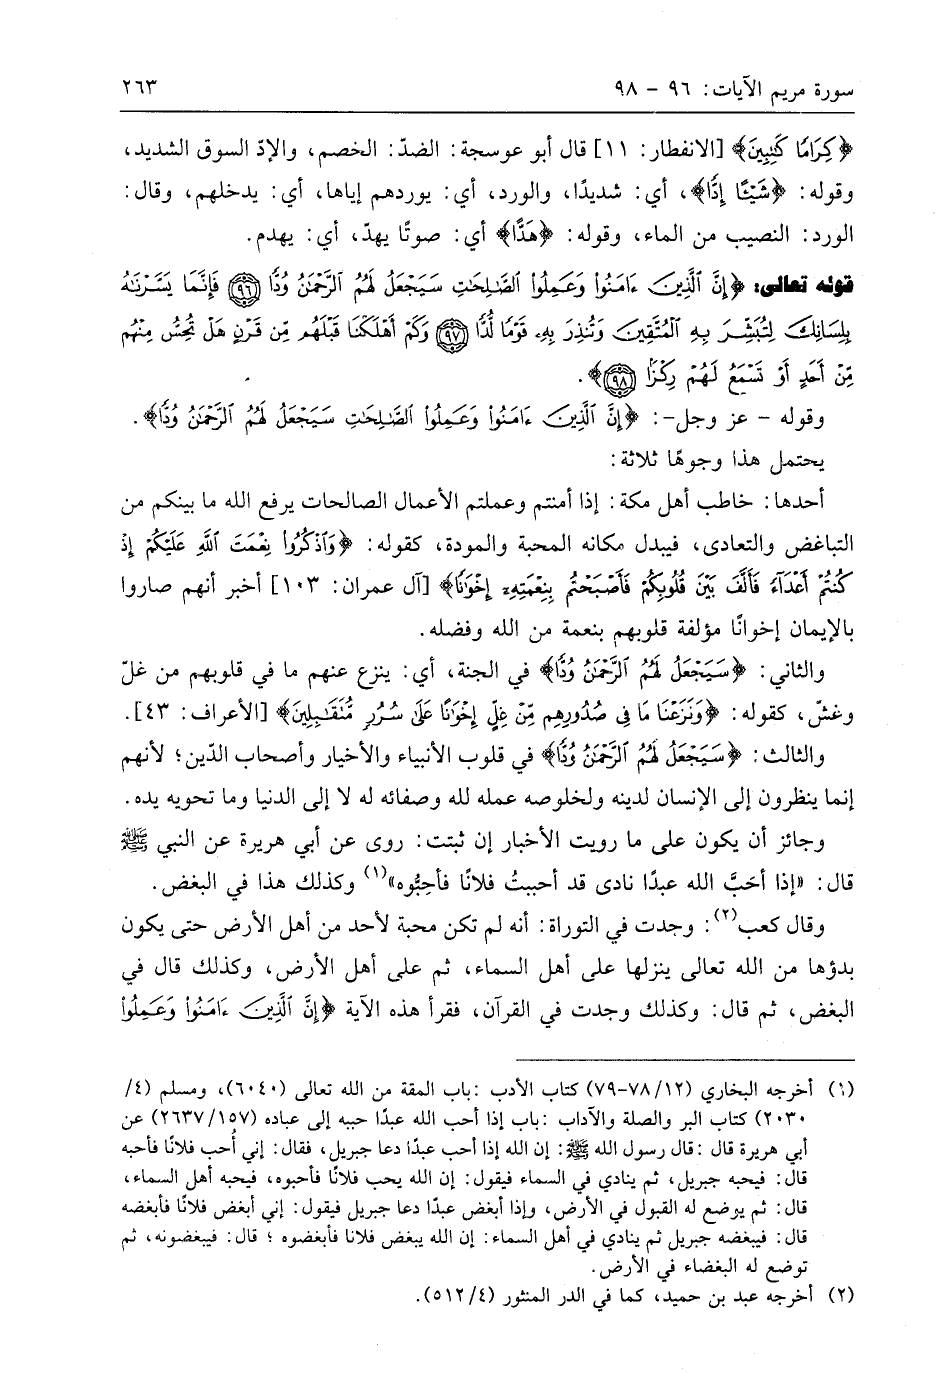 سورة مريم الآيات: ٩٦ - ٩٨ ٢٦٣
﴿كِرَامًا كَٰتِبِينَ﴾ [الانفطار: ١١] قال أبو عوسجة: الضدّ: الخصم، والإدّ السوق الشديد،
وقوله: ﴿شَيْـًٔا إِدًّا﴾، أي: شديدًا، والورد، أي: يوردهم إياها، أي: يدخلهم، وقال:
الورد: النصيب من الماء، وقوله: ﴿هَدًّا﴾ أي: صوتًا يهدّ، أي: يهدم.
قوله تعالى: ﴿إِنَّ ٱلَّذِينَ ءَامَنُوا۟ وَعَمِلُوا۟ ٱلصَّٰلِحَٰتِ سَيَجْعَلُ لَهُمُ ٱلرَّحْمَٰنُ وُدًّا ٩٦ فَإِنَّمَا يَسَّرْنَٰهُ
بِلِسَانِكَ لِتُبَشِّرَ بِهِ ٱلْمُتَّقِينَ وَتُنذِرَ بِهِۦ قَوْمًا لُّدًّا ٩٧ وَكَمْ أَهْلَكْنَا قَبْلَهُم مِّن قَرْنٍ هَلْ تُحِسُّ مِنْهُم
مِّنْ أَحَدٍ أَوْ تَسْمَعُ لَهُمْ رِكْزًۢا ٩٨﴾.
وقوله - عز وجل-: ﴿إِنَّ ٱلَّذِينَ ءَامَنُوا۟ وَعَمِلُوا۟ ٱلصَّٰلِحَٰتِ سَيَجْعَلُ لَهُمُ ٱلرَّحْمَٰنُ وُدًّا﴾.
يحتمل هذا وجوهًا ثلاثة:
أحدها: خاطب أهل مكة: إذا أمنتم وعملتم الأعمال الصالحات يرفع الله ما بينكم من
التباغض والتعادى، فيبدل مكانه المحبة والمودة، كقوله: ﴿وَٱذْكُرُوا۟ نِعْمَتَ ٱللَّهِ عَلَيْكُمْ إِذْ
كُنتُمْ أَعْدَآءً فَأَلَّفَ بَيْنَ قُلُوبِكُمْ فَأَصْبَحْتُم بِنِعْمَتِهِۦٓ إِخْوَٰنًا﴾ [آل عمران: ١٠٣] أخبر أنهم صاروا
بالإيمان إخوانًا مؤلفة قلوبهم بنعمة من الله وفضله.
والثاني: ﴿سَيَجْعَلُ لَهُمُ ٱلرَّحْمَٰنُ وُدًّا﴾ في الجنة، أي: ينزع عنهم ما في قلوبهم من غلّ
وغشّ، كقوله: ﴿وَنَزَعْنَا مَا فِى صُدُورِهِم مِّنْ غِلٍّ إِخْوَٰنًا عَلَىٰ سُرُرٍ مُّتَقَٰبِلِينَ﴾ [الأعراف: ٤٣].
والثالث: ﴿سَيَجْعَلُ لَهُمُ ٱلرَّحْمَٰنُ وُدًّا﴾ في قلوب الأنبياء والأخيار وأصحاب الدّين؛ لأنهم
إنما ينظرون إلى الإنسان لدينه ولخلوصه عمله لله وصفائه له لا إلى الدنيا وما تحويه يده.
وجائز أن يكون على ما رويت الأخبار إن ثبتت: روى عن أبي هريرة عن النبي ﷺ
قال: «إذا أحَبَّ الله عبدًا نادى قد أحببتُ فلانًا فأحِبُّوه»(١) وكذلك هذا في البغض.
وقال كعب(٢): وجدت في التوراة: أنه لم تكن محبة لأحد من أهل الأرض حتى يكون
بدؤها من الله تعالى ينزلها على أهل السماء، ثم على أهل الأرض، وكذلك قال في
البغض، ثم قال: وكذلك وجدت في القرآن، فقرأ هذه الآية ﴿إِنَّ ٱلَّذِينَ ءَامَنُوا۟ وَعَمِلُوا۟
(١) أخرجه البخاري (٧٨/١٢-٧٩) كتاب الأدب :باب المقة من الله تعالى (٦٠٤٠)، ومسلم (٤/
٢٠٣٠) كتاب البر والصلة والآداب :باب إذا أحب الله عبدًا حببه إلى عباده (٢٦٣٧/١٥٧) عن
أبي هريرة قال :قال رسول الله ﷺ: إن الله إذا أحب عبدًا دعا جبريل، فقال: إني أُحب فلانًا فأحبه
قال: فيحبه جبريل، ثم ينادي في السماء فيقول: إن الله يحب فلانًا فأحبوه، فيحبه أهل السماء،
قال: ثم يوضع له القبول في الأرض، وإذا أبغض عبدًا دعا جبريل فيقول: إني أبغض فلانًا فأبغضه
قال: فيبغضه جبريل ثم ينادي في أهل السماء: إن الله يبغض فلانا فأبغضوه ؛ قال: فيبغضونه، ثم
توضع له البغضاء في الأرض.
(٢) أخرجه عبد بن حميد، كما في الدر المنثور (٥١٢/٤).